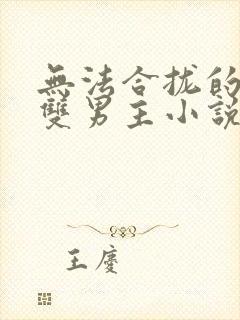 無法合拢的
雙男主小説
王慶